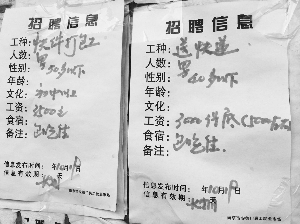 招聘信息
工种：快件打包工
人数：男
性别：50岁以下
年龄：
文化：初中以上
工资：3500元
食宿：包吃住
备注：
信息发布时间：年10月19日
信息有效期：天
招聘信息
工种：送快递
人数：男
性别：50岁以下
年龄：
文化：
工资：3000保底（5000左右）
食宿：包吃住
备注：
信息发布时间：年10月19日
信息有效期：天